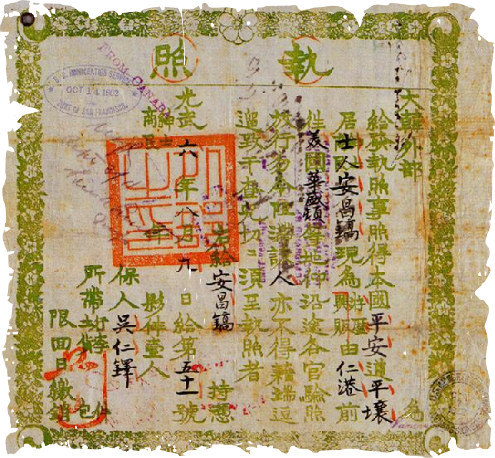 執照
大韓外部 為
給發執照事照得本國平安道平壤
居士人安昌鎬現為由仁港前
往美國華盛頓等地仰沿途各官驗照
放行人亦不得藉端逗
遛致干查究須至執照者
右給安昌鎬 持憑
光武六年八月九日給第五十一號
夥伴壹人
保人吳仁鐸
所帶行李
限回日繳銷
FROM CANADA
IMMIGRATION SERVICE
OCT 14 1902
PORT OF SAN FRANCISCO